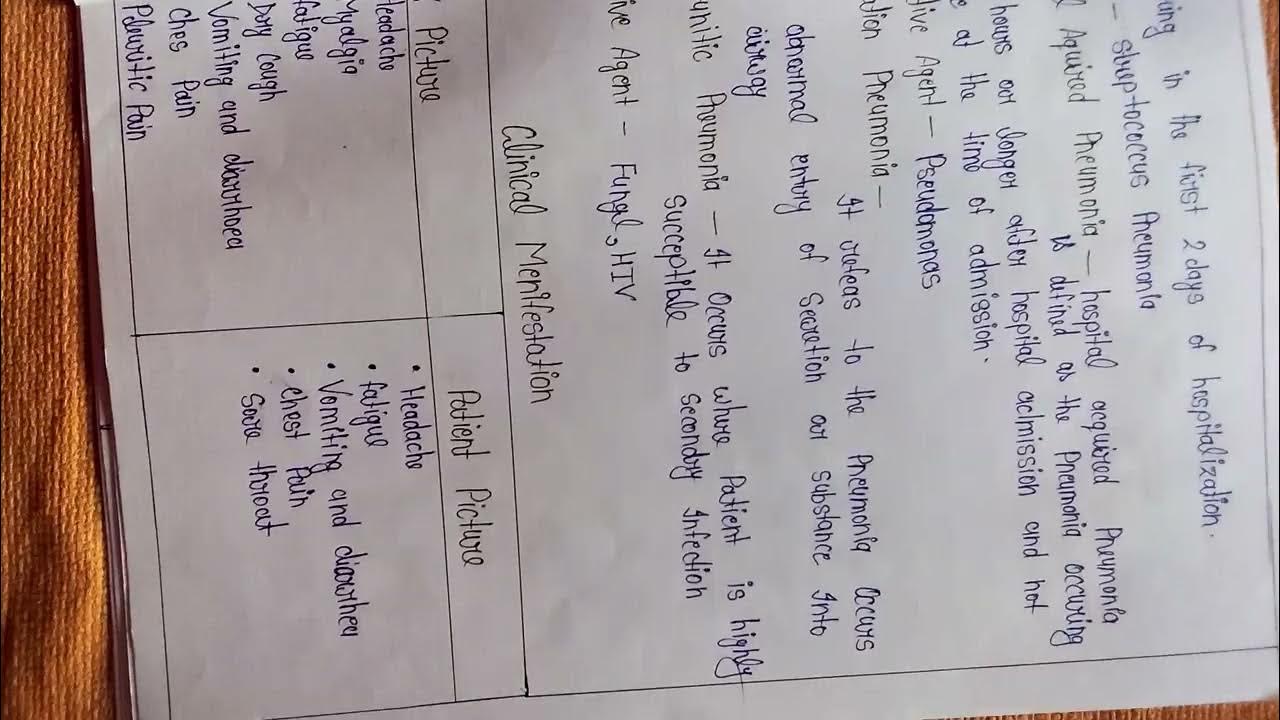 ing in the first 2 days of hospitalization.
– streptococcus Pneumonia
Aquired Pneumonia – hospital acquired Pneumonia
is defined as the Pneumonia occuring
hours or longer after hospital admission and not
at the time of admission.
tive Agent – Pseudomonas
ation Pneumonia –
It refeas to the Pneumonia occurs
abnormal entry of Secretion or substance Into
airway
unitic Pneumonia – It Occurs where Patient is highly
Succeptible to Secondry Infection
ive Agent – Fungal, HIV
Clinical Menifestation
Picture
Patient Picture
Headache
Myalgia
fatigue
Dry Cough
Vomiting and diarrhoea
ches Pain
Pleuritic Pain
• Headache
• fatigue
• Vomiting and diarrhea
• chest Pain
• Sore throat